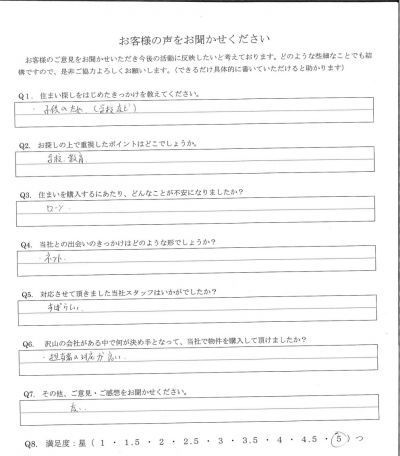 お客様の声をお聞かせください
お客様のご意見をお聞かせいただき今後の活動に反映したいと考えております。どのような些細なことでも結
構ですので、是非ご協力よろしくお願いします。(できるだけ具体的に書いていただけると助かります)
Q1. 住まい探しをはじめたきっかけを教えてください。
・子供のため (学校など)
Q2. お探しの上で重視したポイントはどこでしょうか。
学校 教育
Q3. 住まいを購入するにあたり、どんなことが不安になりましたか?
ローン
Q4. 当社との出会いのきっかけはどのような形でしょうか?
・ネット
Q5. 対応させて頂きました当社スタッフはいかがでしたか?
すばらしい
Q6. 沢山の会社がある中で何が決め手となって、当社で物件を購入して頂けましたか?
・担当者の対応が良い
Q7. その他、ご意見・ご感想をお聞かせください。
ない
Q8. 満足度:星 ( 1 ・ 1.5 ・ 2 ・ 2.5 ・ 3 ・ 3.5 ・ 4 ・ 4.5 ・ 5 ) つ